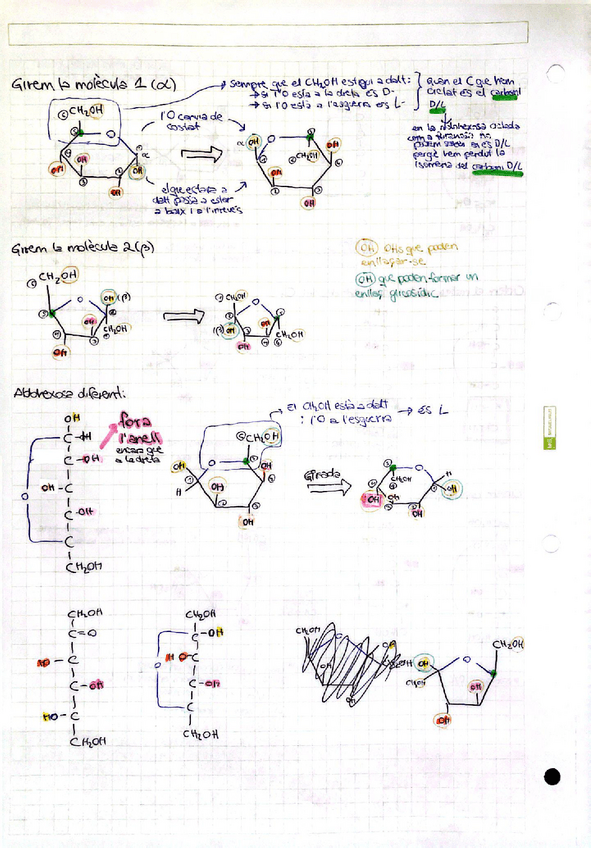 Girem la molècula 1 (α)
→ sempre que el CH₂OH estigui a dalt:
→ si l'O està a la dreta és D-
→ si l'O està a l'esquerra és L-
quan el C que hem
ciclat és el carboni
D/L
en la
ciclada
com a furanosis no
podem saber si és D/L
perquè hem perdut la
isomeria del carboni D/L
l'O canvia de
costat
el que estava a
dalt passa a estar
a baix i a l'inrevés
CH₂OH
O
OH
OH
OH
OH
α
α
OH
O
OH
CH₂OH
OH
OH
Girem la molècula 2 (β)
OH OHs que poden
enllaçar-se
OH que poden formar un
enllaç glicosídic
CH₂OH
O
OH (β)
OH
CH₂OH
OH
CH₂OH
O
OH
OH
CH₂OH
OH
Aldohexosa diferent:
El CH₂OH està a dalt
i l'O a l'esquerra → és L
fora
l'anell
encara que
a la dreta
OH
C-H
C-OH
OH-C
C-OH
C
C
CH₂OH
O
CH₂OH
OH
O
OH
H
OH
OH
Girada
O
H
OH
CH₂OH
OH
OH
OH
CH₂OH
C=O
HO-C
C-OH
HO-C
CH₂OH
CH₂OH
C-OH
HO-C
C-OH
C
CH₂OH
O
CH₂OH
OH
OH
OH
CH₂OH
OH
O
CH₂OH
OH
OH